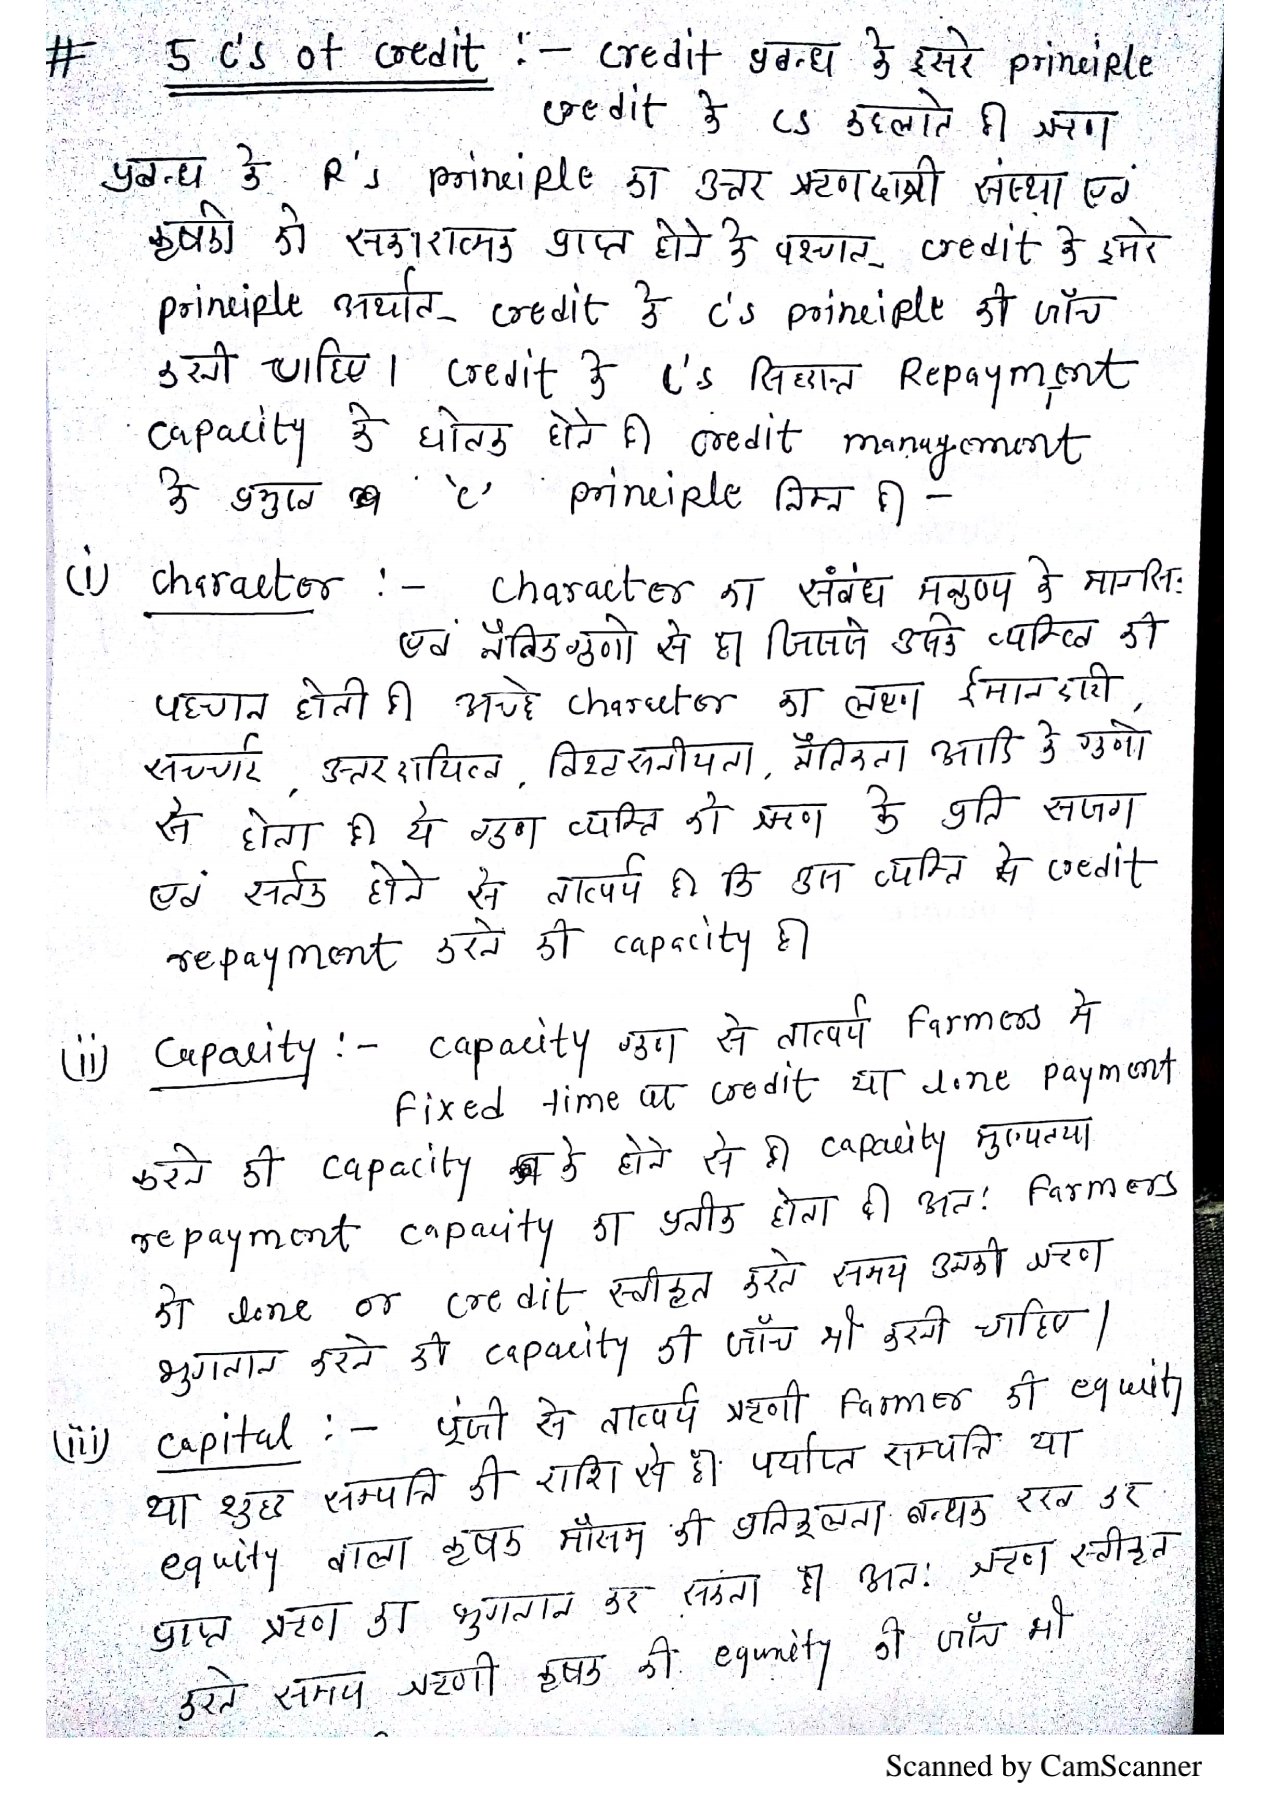 # 5 C's of credit :- Credit प्रबन्ध के दूसरे principle
credit के Cs कहलाते है। ऋण
प्रबन्ध के R's principle का उत्तर ऋणदात्री संस्था एवं
कृषको को सकारात्मक प्राप्त होने के पश्चात् credit के दूसरे
principle अर्थात् credit के C's principle की जॉच
करनी चाहिए। Credit के C's सिद्धान्त Repayment
capacity के धोतक होते है। credit management
के प्रमुख 'C' principle निम्न है। -
(i) character :- Character का संबंध मनुष्य के मानसि:
एवं नैतिक गुणो से है। जिससे उसके व्यक्तित्व की
पहचान होती है। अच्छे character का लक्षण ईमानदारी,
सच्चाई, उत्तरदायित्व, विश्वसनीयता, नैतिकता आदि के गुणो
से होता है। ये गुण व्यक्ति को ऋण के प्रति सजग
एवं सर्तक होने से तात्पर्य है। कि उस व्यक्ति से credit
repayment करने की capacity है।
(ii) Capacity :- capacity गुण से तात्पर्य Farmers मे
Fixed time पर credit या lone payment
करने की capacity के होने से है। capacity मुख्यतया
repayment capacity का प्रतीक होता है। अत: Farmers
को lone or credit स्वीकृत करते समय उनकी ऋण
भुगतान करने की capacity की जॉच भी करनी चाहिए।
(iii) Capital :- पूंजी से तात्पर्य ऋणी Farmer की equity
या शुद्ध सम्पत्ति की राशि से है। पर्याप्त सम्पत्ति या
equity वाला कृषक मौसम की प्रतिकूलता बन्धक रख कर
प्राप्त ऋण का भुगतान कर सकता है। अत: ऋण स्वीकृत
करते समय ऋणी कृषक की equity की जॉच भी
Scanned by CamScanner